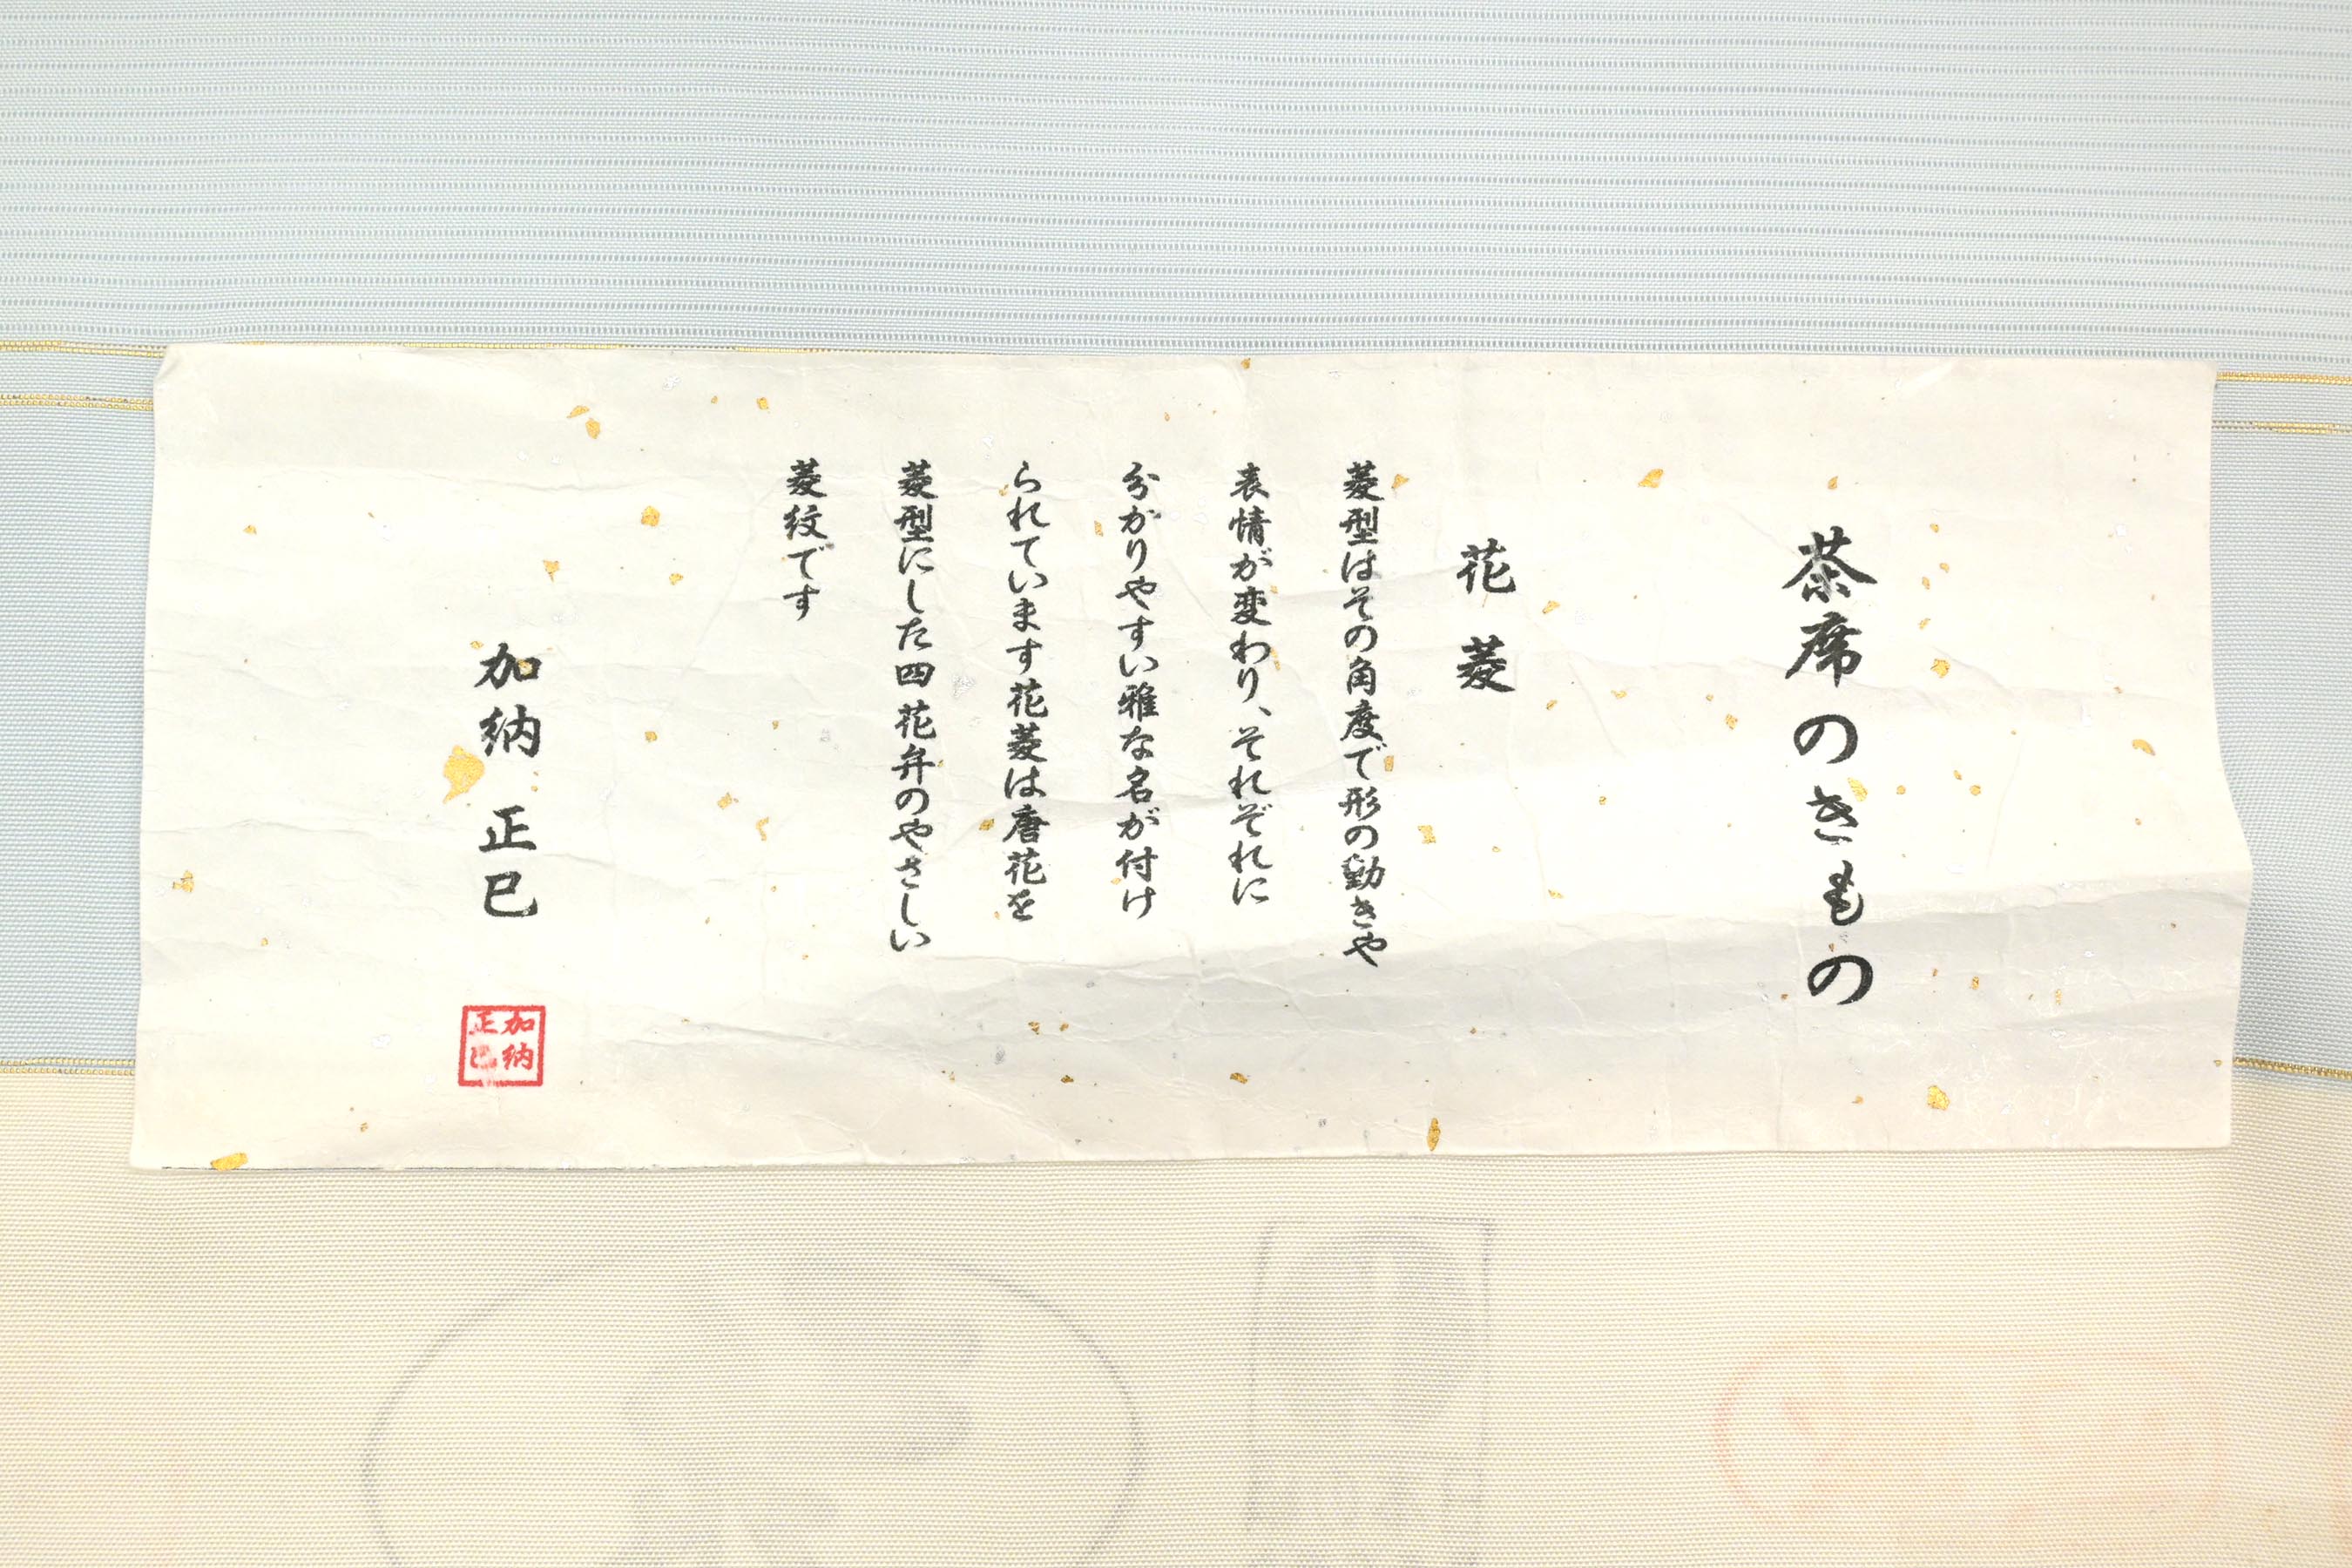 茶席のきもの
花菱
菱型はその角度で形の動きや
表情が変わり、それぞれに
分かりやすい雅な名が付け
られています花菱は唐花を
菱型にした四花弁のやさしい
菱紋です
加納正巳
加納
正巳